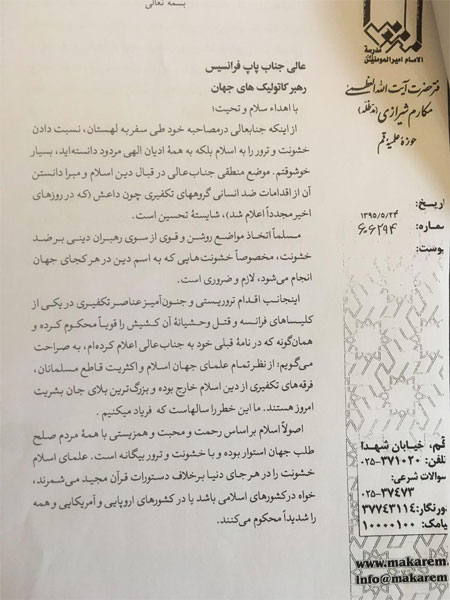 بسمه تعالی
عالی جناب پاپ فرانسیس
رهبر کاتولیک های جهان
با اهداء سلام و تحیت؛
از اینکه جنابعالی درمصاحبه خود طی سفر به لهستان، نسبت دادن
خشونت و ترور را به اسلام بلکه به همهٔ ادیان الهی مردود دانسته‌اید، بسیار
خوشوقتم. موضع منطقی جناب عالی در قبال دین اسلام و مبرا دانستن
آن از اقدامات ضد انسانی گروههای تکفیری چون داعش (که در روزهای
اخیر مجدداً اعلام شد)، شایستهٔ تحسین است.
مسلماً اتخاذ مواضع روشن و قوی از سوی رهبران دینی بر ضد
خشونت، مخصوصاً خشونت‌هایی که به اسم دین در هر کجای جهان
انجام می‌شود، لازم و ضروری است.
اینجانب اقدام تروریستی و جنون‌آمیز عناصر تکفیری در یکی از
کلیساهای فرانسه و قتل وحشیانهٔ آن کشیش را قویاً محکوم کرده و
همان‌گونه که در نامهٔ قبلی خود به جناب عالی اعلام کرده‌ام، به صراحت
می‌گویم: از نظر تمام علمای جهان اسلام و اکثریت قاطع مسلمانان،
فرقه‌های تکفیری از دین اسلام خارج بوده و بزرگ‌ترین بلای جان بشریت
امروز هستند. ما این خطر را سالهاست که فریاد میکنیم .
اصولاً اسلام بر اساس رحمت و محبت و همزیستی با همهٔ مردم صلح
طلب جهان استوار بوده و با خشونت و ترور بیگانه است. علمای اسلام
خشونت را در هر جای دنیا برخلاف دستورات قرآن مجید می‌شمرند،
خواه در کشورهای اسلامی باشد یا در کشورهای اروپایی و آمریکایی و همه
را شدیداً محکوم می‌کنند.
مدرسة
الامام امیرالمومنین
دفتر حضرت آیت الله العظمی
مکارم شیرازی (مدظله)
حوزه علمیه قم
اریخ:
۱۳۹۵/۵/۲۴
شماره:
۶۰۶۲۹۴
یوست:
قم، خیابان شهدا
تلفن: ۳۷۱۰۲۰-۰۲۵
سوالات شرعی:
۰۲۵-۳۷۴۷۳
ورنگار: ۳۷۷۴۳۱۱۴
یامک: ۱۰۰۰۰۱۰۰
www.makarem.
info@makarem